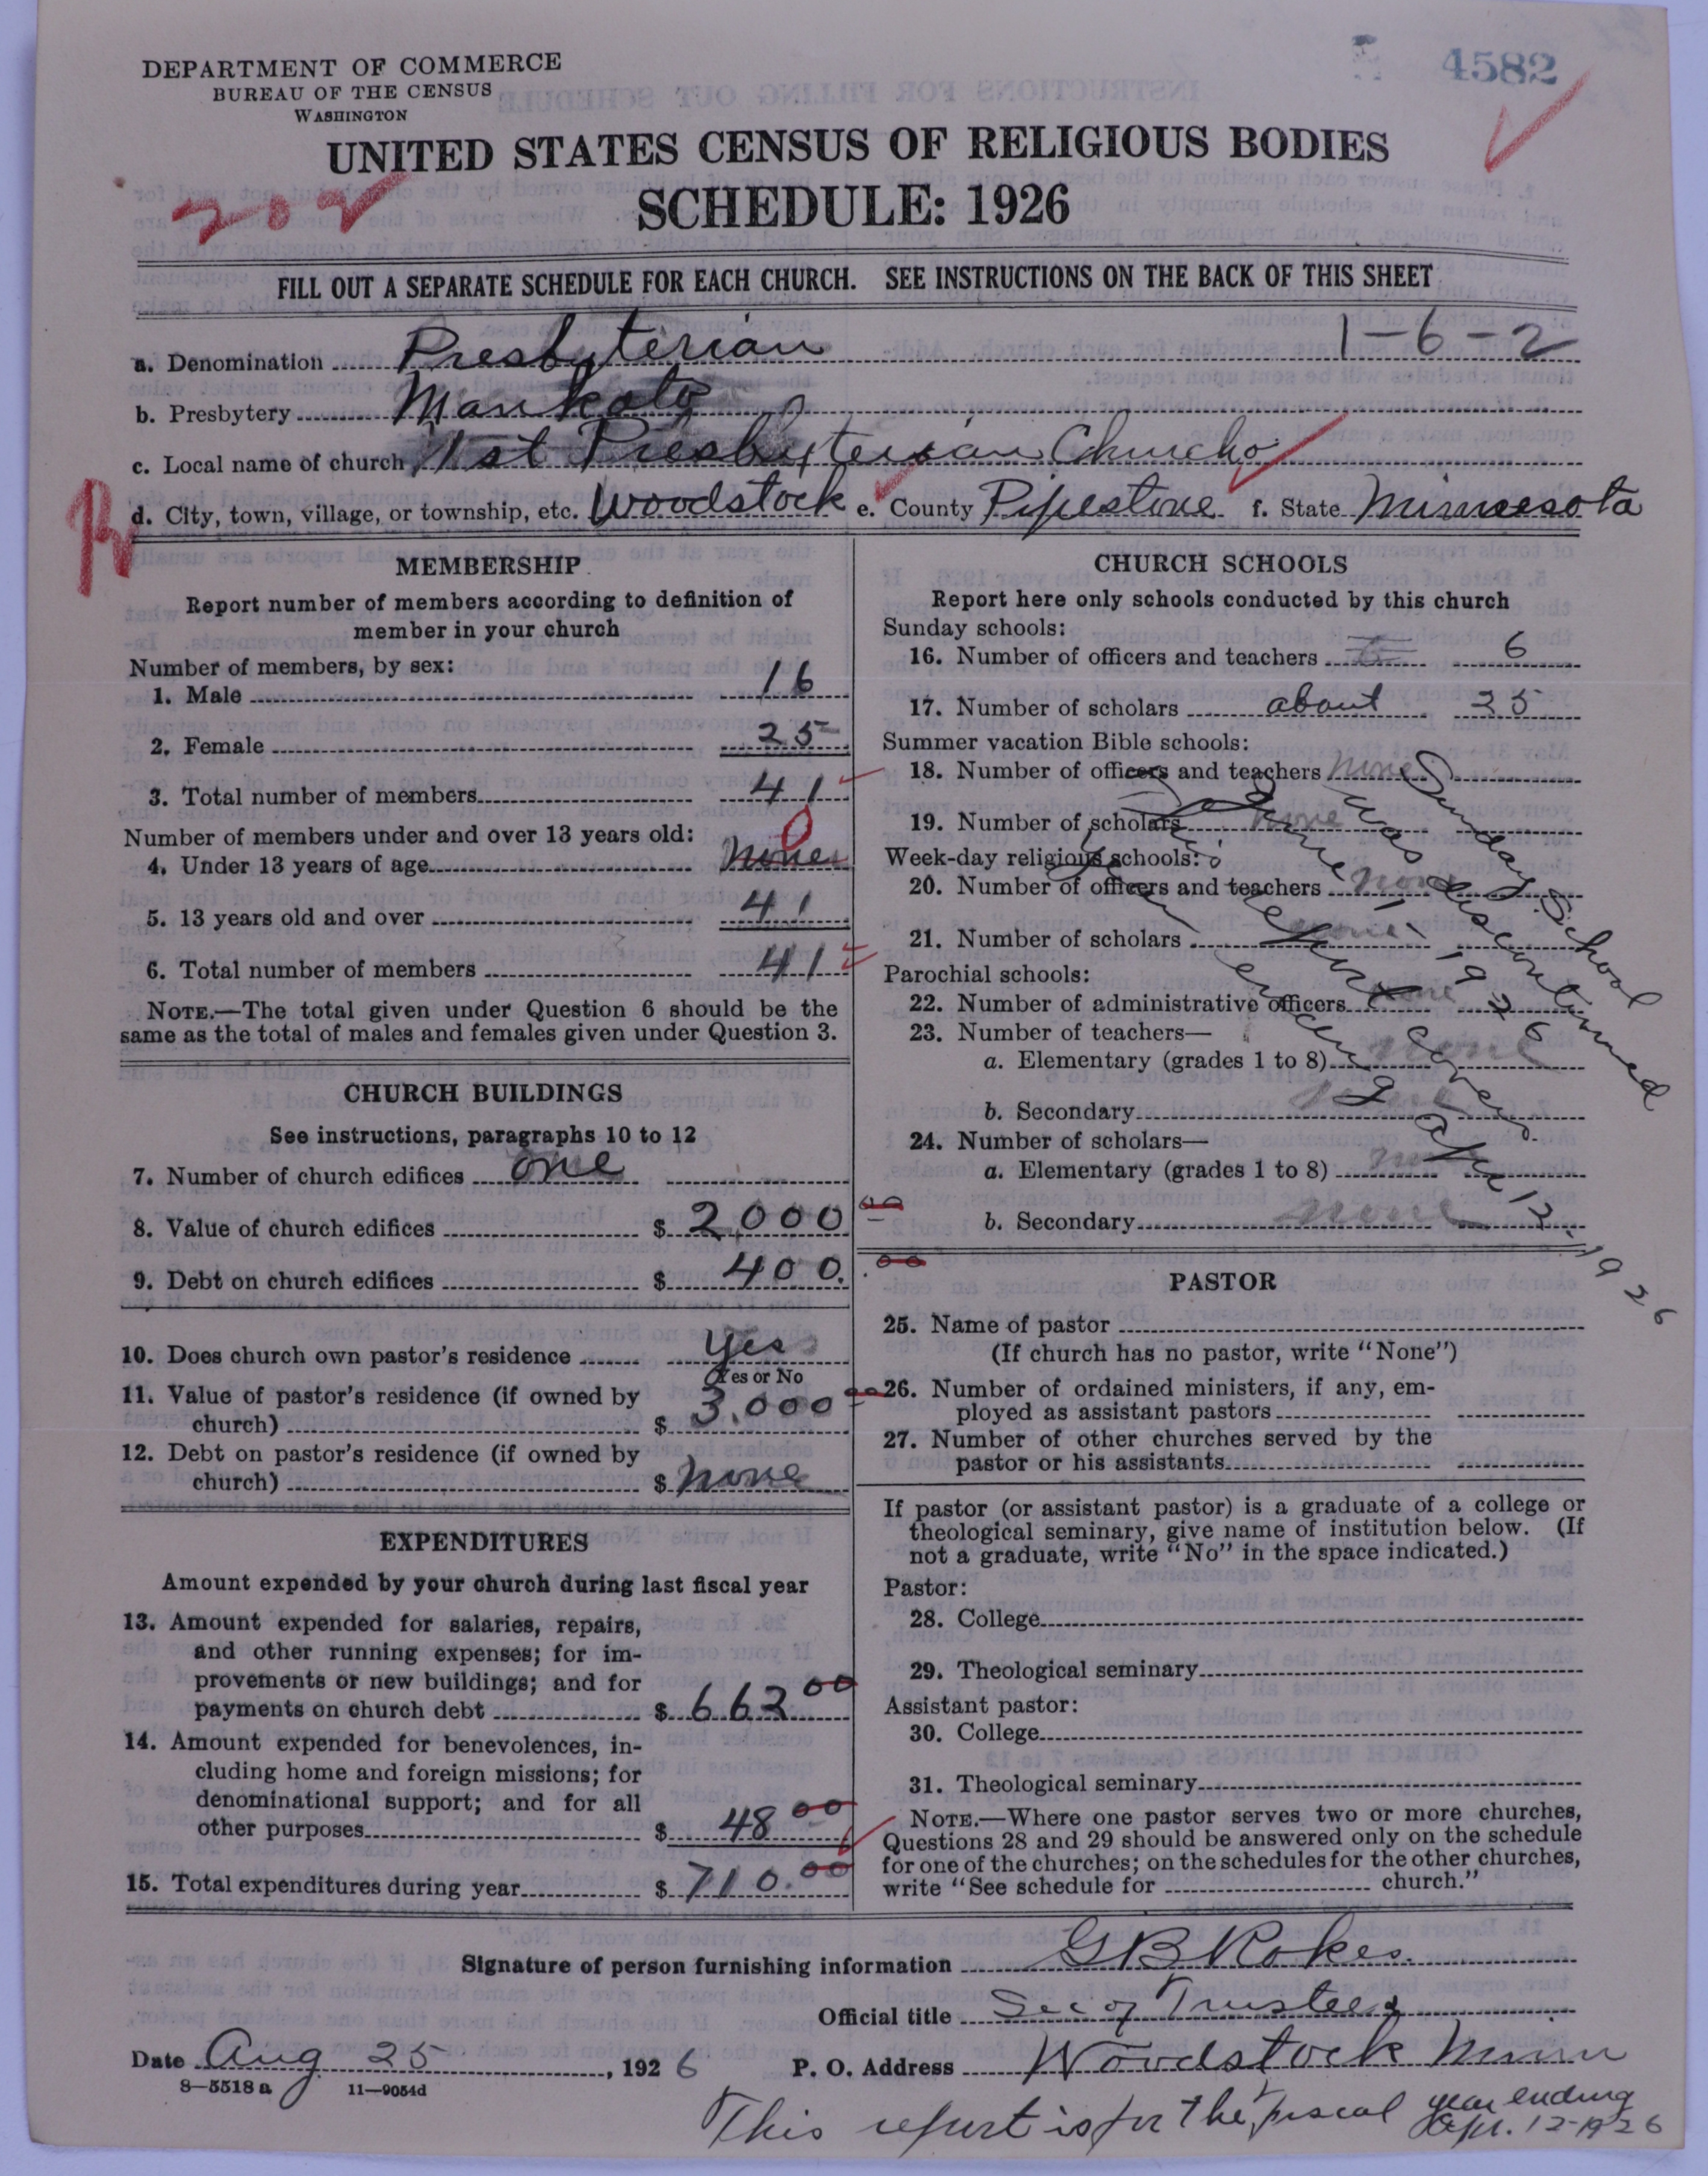 4582
DEPARTMENT OF COMMERCE
BUREAU OF THE CENSUS
WASHINGTON
UNITED STATES CENSUS OF RELIGIOUS BODIES
202
SCHEDULE: 1926
FILL OUT A SEPARATE SCHEDULE FOR EACH CHURCH. SEE INSTRUCTIONS ON THE BACK OF THIS SHEET
a. Denomination Presbyterian 1-6-2
b. Presbytery Mankato
c. Local name of church 1st Presbyterian Church
d. City, town, village, or township, etc. Woodstock e. County Pipestone f. State Minnesota
MEMBERSHIP
Report number of members according to definition of
member in your church
Number of members, by sex:
1. Male 16
2. Female 25
3. Total number of members 41
Number of members under and over 13 years old:
4. Under 13 years of age none 0
5. 13 years old and over 41
6. Total number of members 41
NOTE.—The total given under Question 6 should be the
same as the total of males and females given under Question 3.
CHURCH BUILDINGS
See instructions, paragraphs 10 to 12
7. Number of church edifices one
8. Value of church edifices $ 2,000 00
9. Debt on church edifices $ 400. 00
10. Does church own pastor's residence Yes
Yes or No
11. Value of pastor's residence (if owned by
church) $ 3,000 00
12. Debt on pastor's residence (if owned by
church) $ none
EXPENDITURES
Amount expended by your church during last fiscal year
13. Amount expended for salaries, repairs,
and other running expenses; for im-
provements or new buildings; and for
payments on church debt $ 662 00
14. Amount expended for benevolences, in-
cluding home and foreign missions; for
denominational support; and for all
other purposes $ 48 00
15. Total expenditures during year $ 710.00
CHURCH SCHOOLS
Report here only schools conducted by this church
Sunday schools:
16. Number of officers and teachers 6
17. Number of scholars about 25
Summer vacation Bible schools:
18. Number of officers and teachers none
19. Number of scholars none
Week-day religious schools:
20. Number of officers and teachers none
21. Number of scholars none
Parochial schools:
22. Number of administrative officers none
23. Number of teachers—
a. Elementary (grades 1 to 8) none
b. Secondary none
24. Number of scholars—
a. Elementary (grades 1 to 8) none
b. Secondary none
Sunday School
was discontinued
June 1, 1926
This report covers
year ending Apr 12-1926
PASTOR
25. Name of pastor
(If church has no pastor, write "None")
26. Number of ordained ministers, if any, em-
ployed as assistant pastors
27. Number of other churches served by the
pastor or his assistants
If pastor (or assistant pastor) is a graduate of a college or
theological seminary, give name of institution below. (If
not a graduate, write "No" in the space indicated.)
Pastor:
28. College
29. Theological seminary
Assistant pastor:
30. College
31. Theological seminary
NOTE.—Where one pastor serves two or more churches,
Questions 28 and 29 should be answered only on the schedule
for one of the churches; on the schedules for the other churches,
write "See schedule for church."
Signature of person furnishing information G B Rokes.
Official title Sec of Trustees
Date Aug 25, 1926 P. O. Address Woodstock Minn
8—5518 a 11—9054d
This report is for the fiscal year ending
Apr. 12-1926